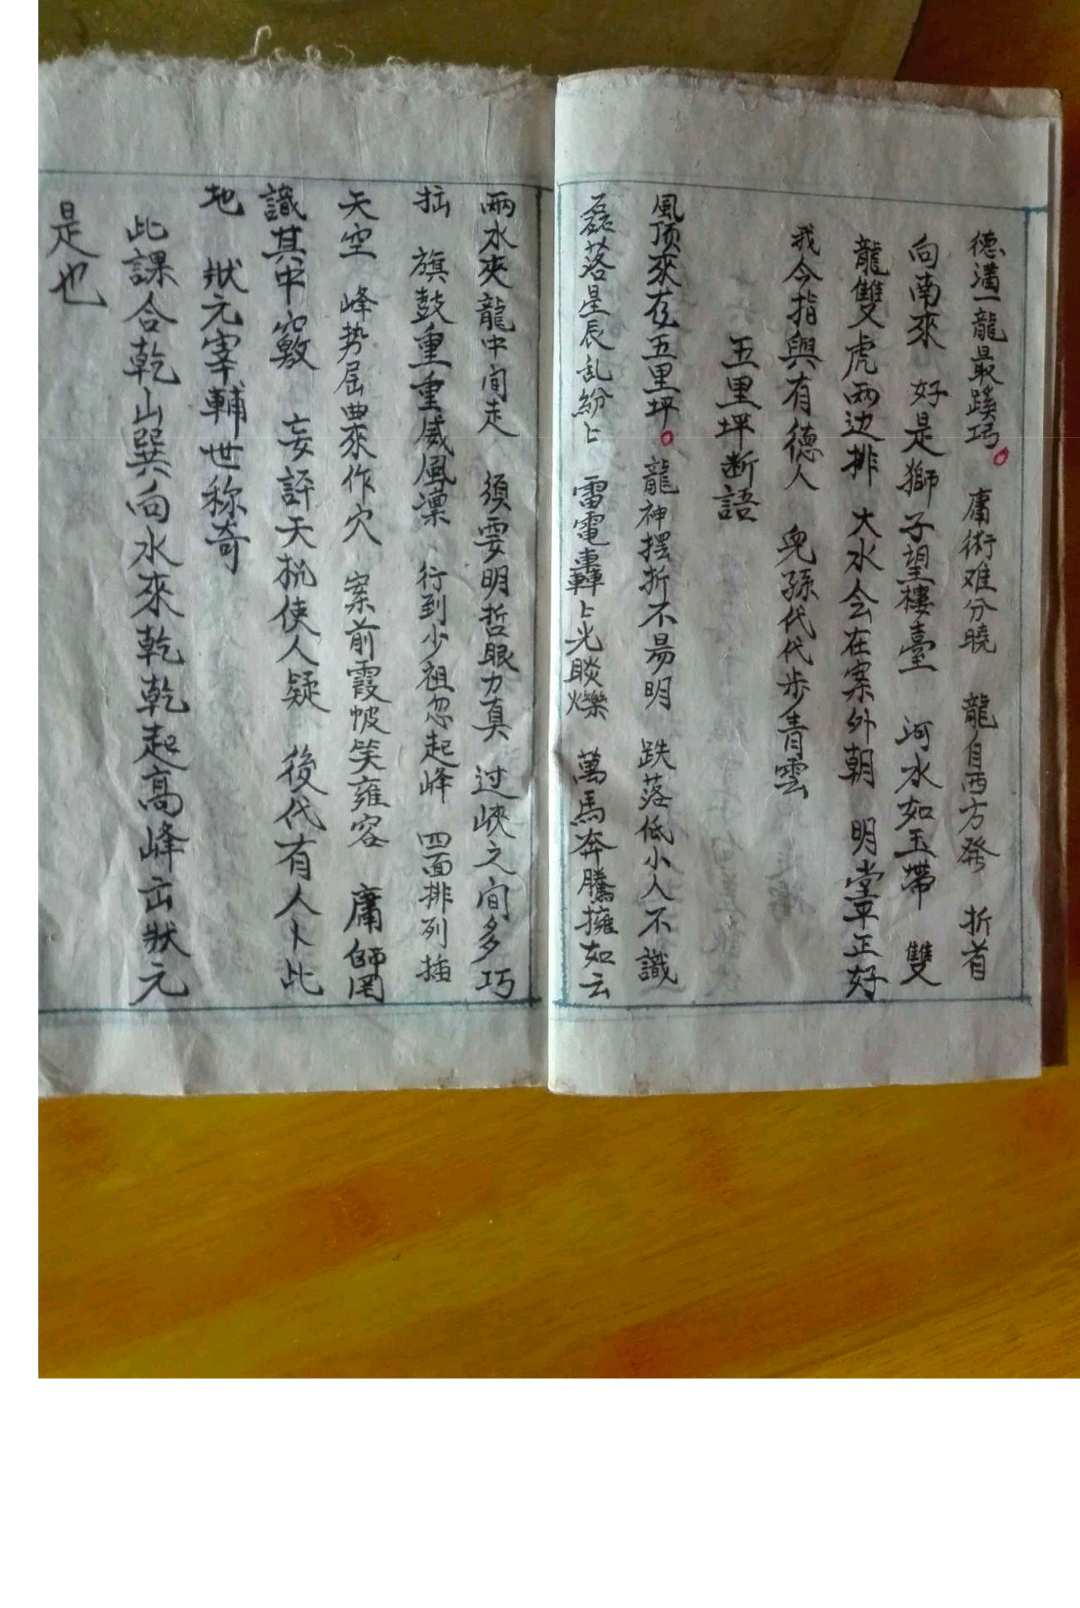 德溝一龍最蹊巧。 庸術难分曉 龍自西方發 折首
向南來 好是獅子望樓臺 河水如玉帶 雙
龍雙虎两边排 大水会在案外朝 明堂平正好
我今指與有德人 兒孫代代步青雲
五里坪断語
風顶來在五里坪。龍神摆折不易明 跌落低小人不識
磊落星辰乱紛〻 雷電轟〻光睒爍 萬馬奔騰擁如云
兩水夾龍中间走 須要明哲眼力真 过峽之间多巧
拙 旗鼓重重威風凜 行到少祖忽起峰 四面排列插
天空 峰势屈曲來作穴 案前霞帔笑雍容 庸師罔
識其中竅 妄評天机使人疑 後代有人卜此
地 狀元宰輔世称奇
此課合乾山巽向水來乾乾起高峰出狀元
是也